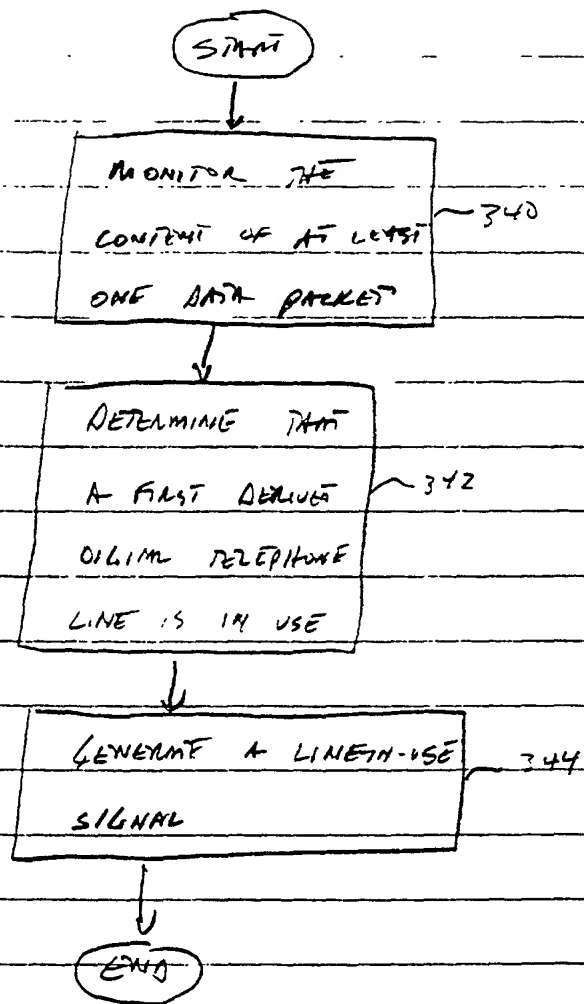 START
MONITOR THE
CONTENT OF AT LEAST
340
ONE DATA PACKET
DETERMINE THAT
A FIRST DERIVED
342
DIGITAL TELEPHONE
LINE IS IN USE
GENERATE A LINE-IN-USE
344
SIGNAL
END